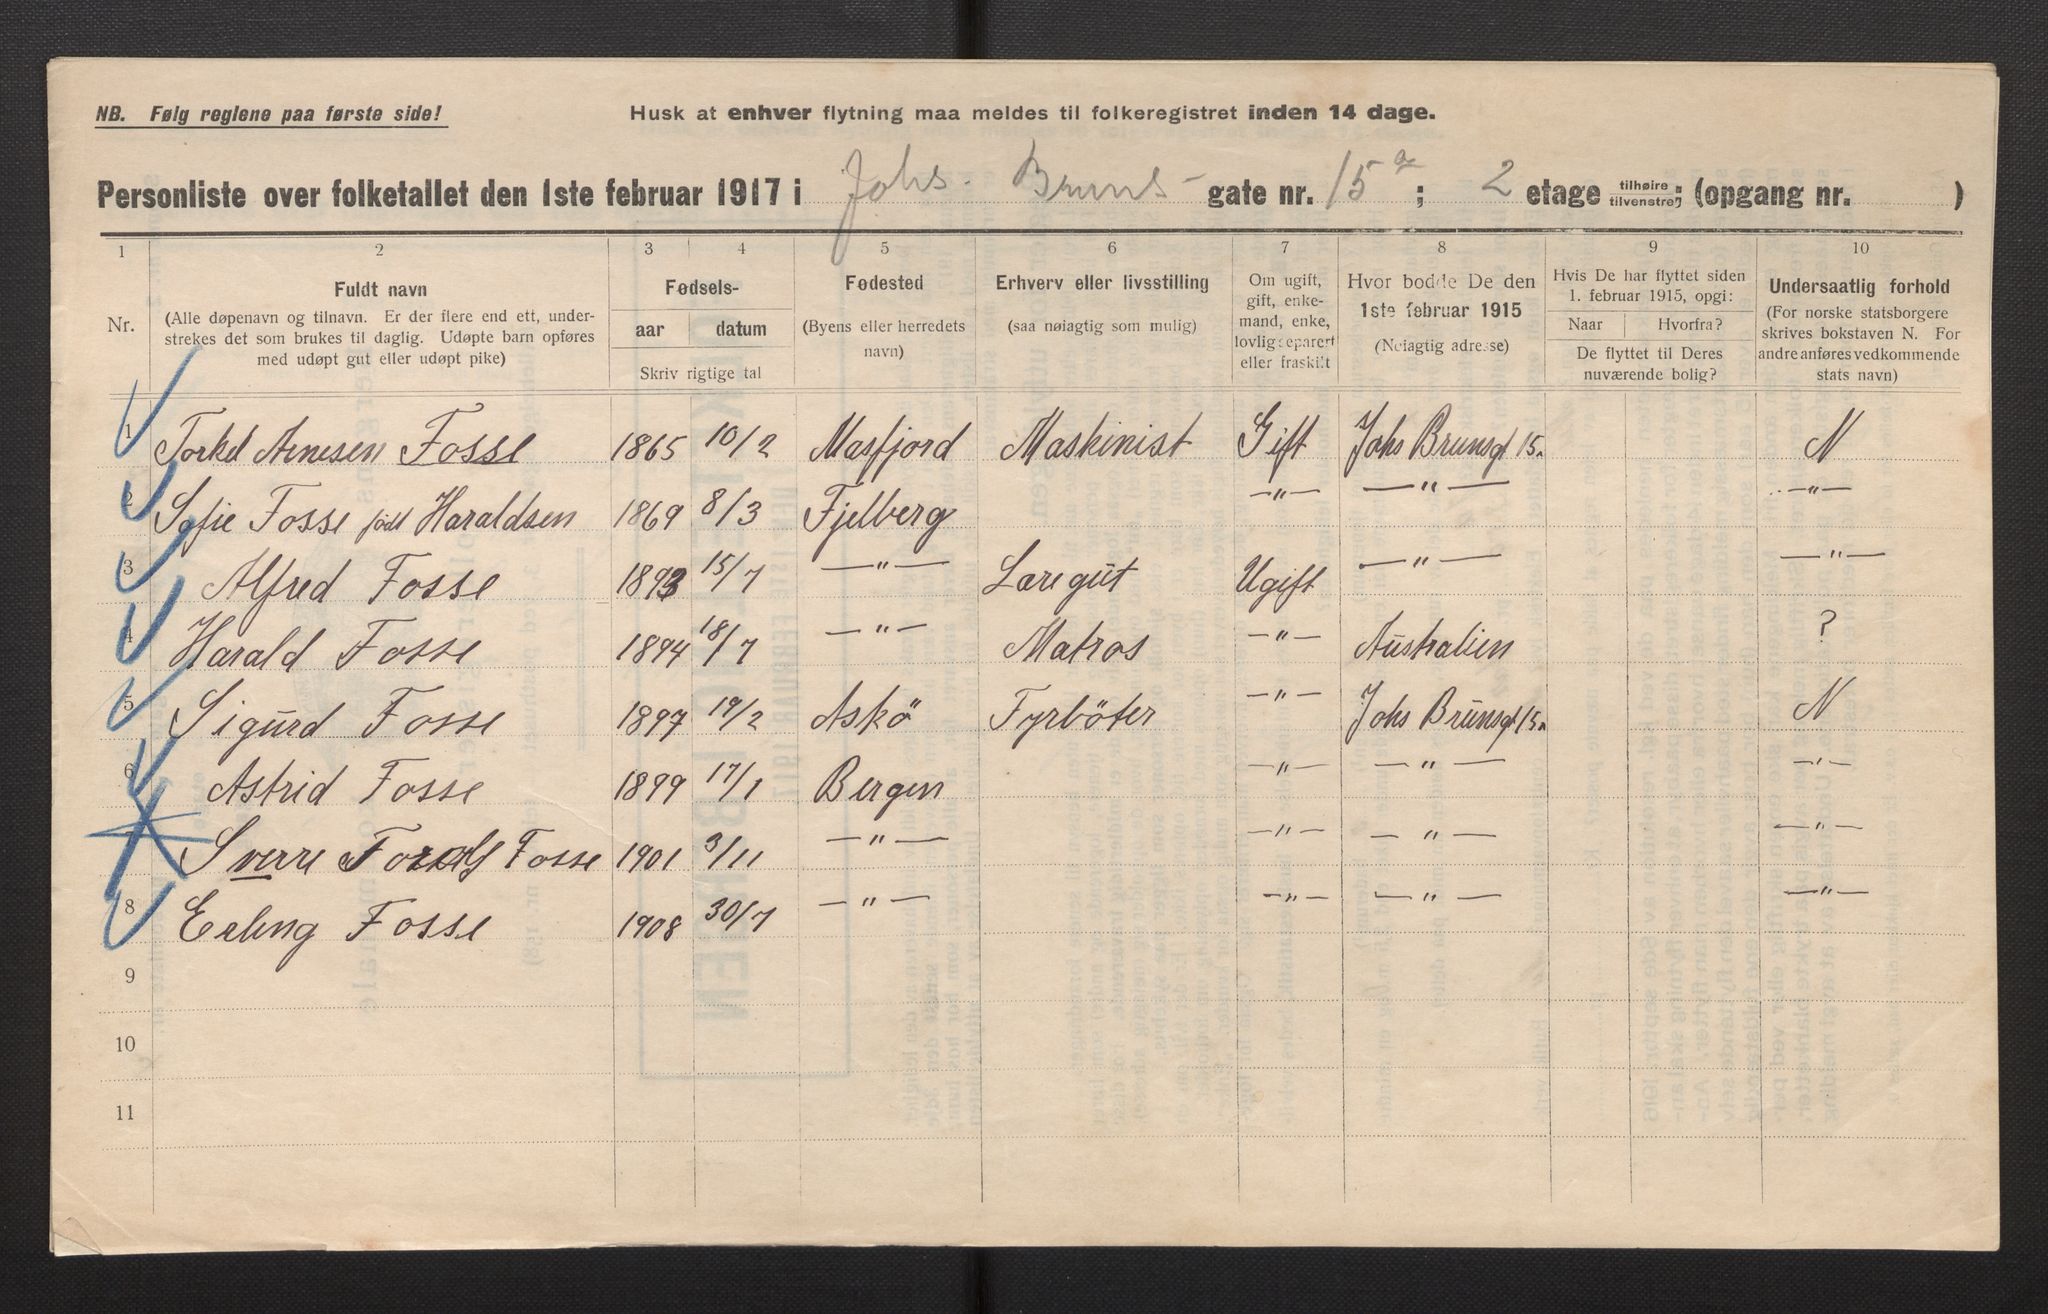 NB. Følg reglene paa første side!
Husk at enhver flytning maa meldes til folkeregistret inden 14 dage.
Personliste over folketallet den 1ste februar 1917 i Johs. Bruns gate nr. 15 a ; 2 etage tilhøire tilvenstre; (opgang nr. )
1 2 3 4 5 6 7 8 9 10
Nr.
Fuldt navn
(Alle døpenavn og tilnavn. Er der flere end ett, under-
strekes det som brukes til daglig. Udøpte barn opføres
med udøpt gut eller udøpt pike)
Fødsels-
aar datum
Skriv rigtige tal
Fødested
(Byens eller herredets
navn)
Erhverv eller livsstilling
(saa nøiagtig som mulig)
Om ugift,
gift, enke-
mand, enke,
lovlig separert
eller fraskilt
Hvor bodde De den
1ste februar 1915
(Nøiagtig adresse)
Hvis De har flyttet siden
1. februar 1915, opgi:
Naar Hvorfra?
De flyttet til Deres
nuværende bolig?
Undersaatlig forhold
(For norske statsborgere
skrives bokstaven N. For
andre anføres vedkommende
stats navn)
1 Torkel Arnesen Fosse 1865 10/2 Masfjord Maskinist Gift Johs Brunsgt 15a N
2 Sofie Fosse født Haraldsen 1869 8/3 Fjelberg —"— —"— —"—
3 Alfred Fosse 1893 15/7 —"— Læregut Ugift —"— —"—
4 Harald Fosse 1894 18/7 —"— Matros —"— Australien ?
5 Sigurd Fosse 1897 19/2 Askö Fyrböter —"— Johs Brunsgt 15a N
6 Astrid Fosse 1899 17/1 Bergen —"— —"— —"—
7 Sverre Fosse 1901 3/11 —"— —"— —"— —"—
8 Erling Fosse 1908 30/7 —"— —"— —"— —"—
9
10
11